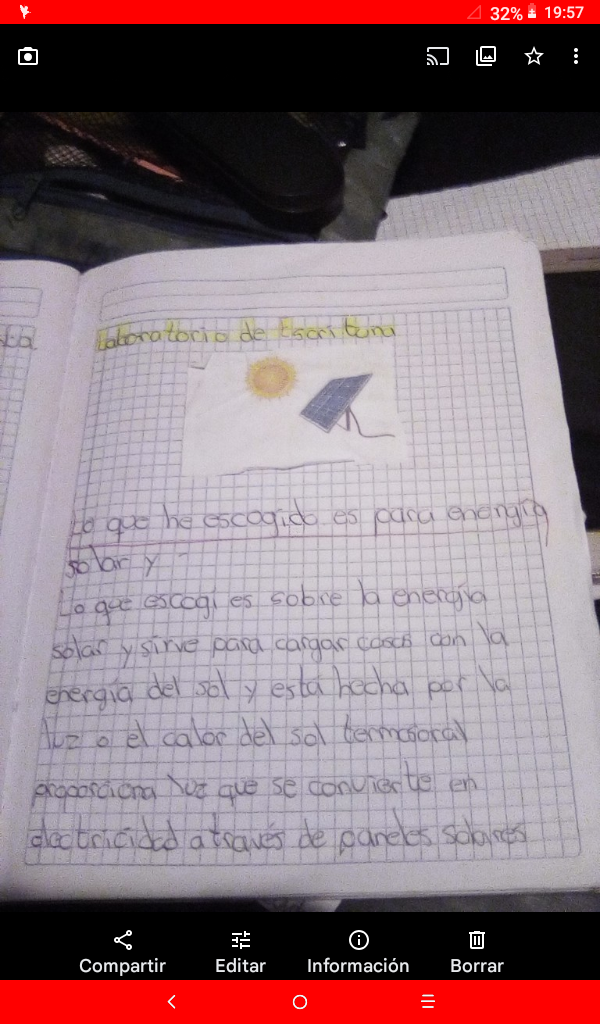 32% 19:57
Laboratorio de Escritura
Lo que he escogido es para energía
solar y -
Lo que escogí es sobre la energía
solar y sirve para cargar cosas con la
energía del sol y está hecha por la
luz o el calor del sol
proporciona luz que se convierte en
electricidad através de paneles solares
Compartir Editar Información Borrar